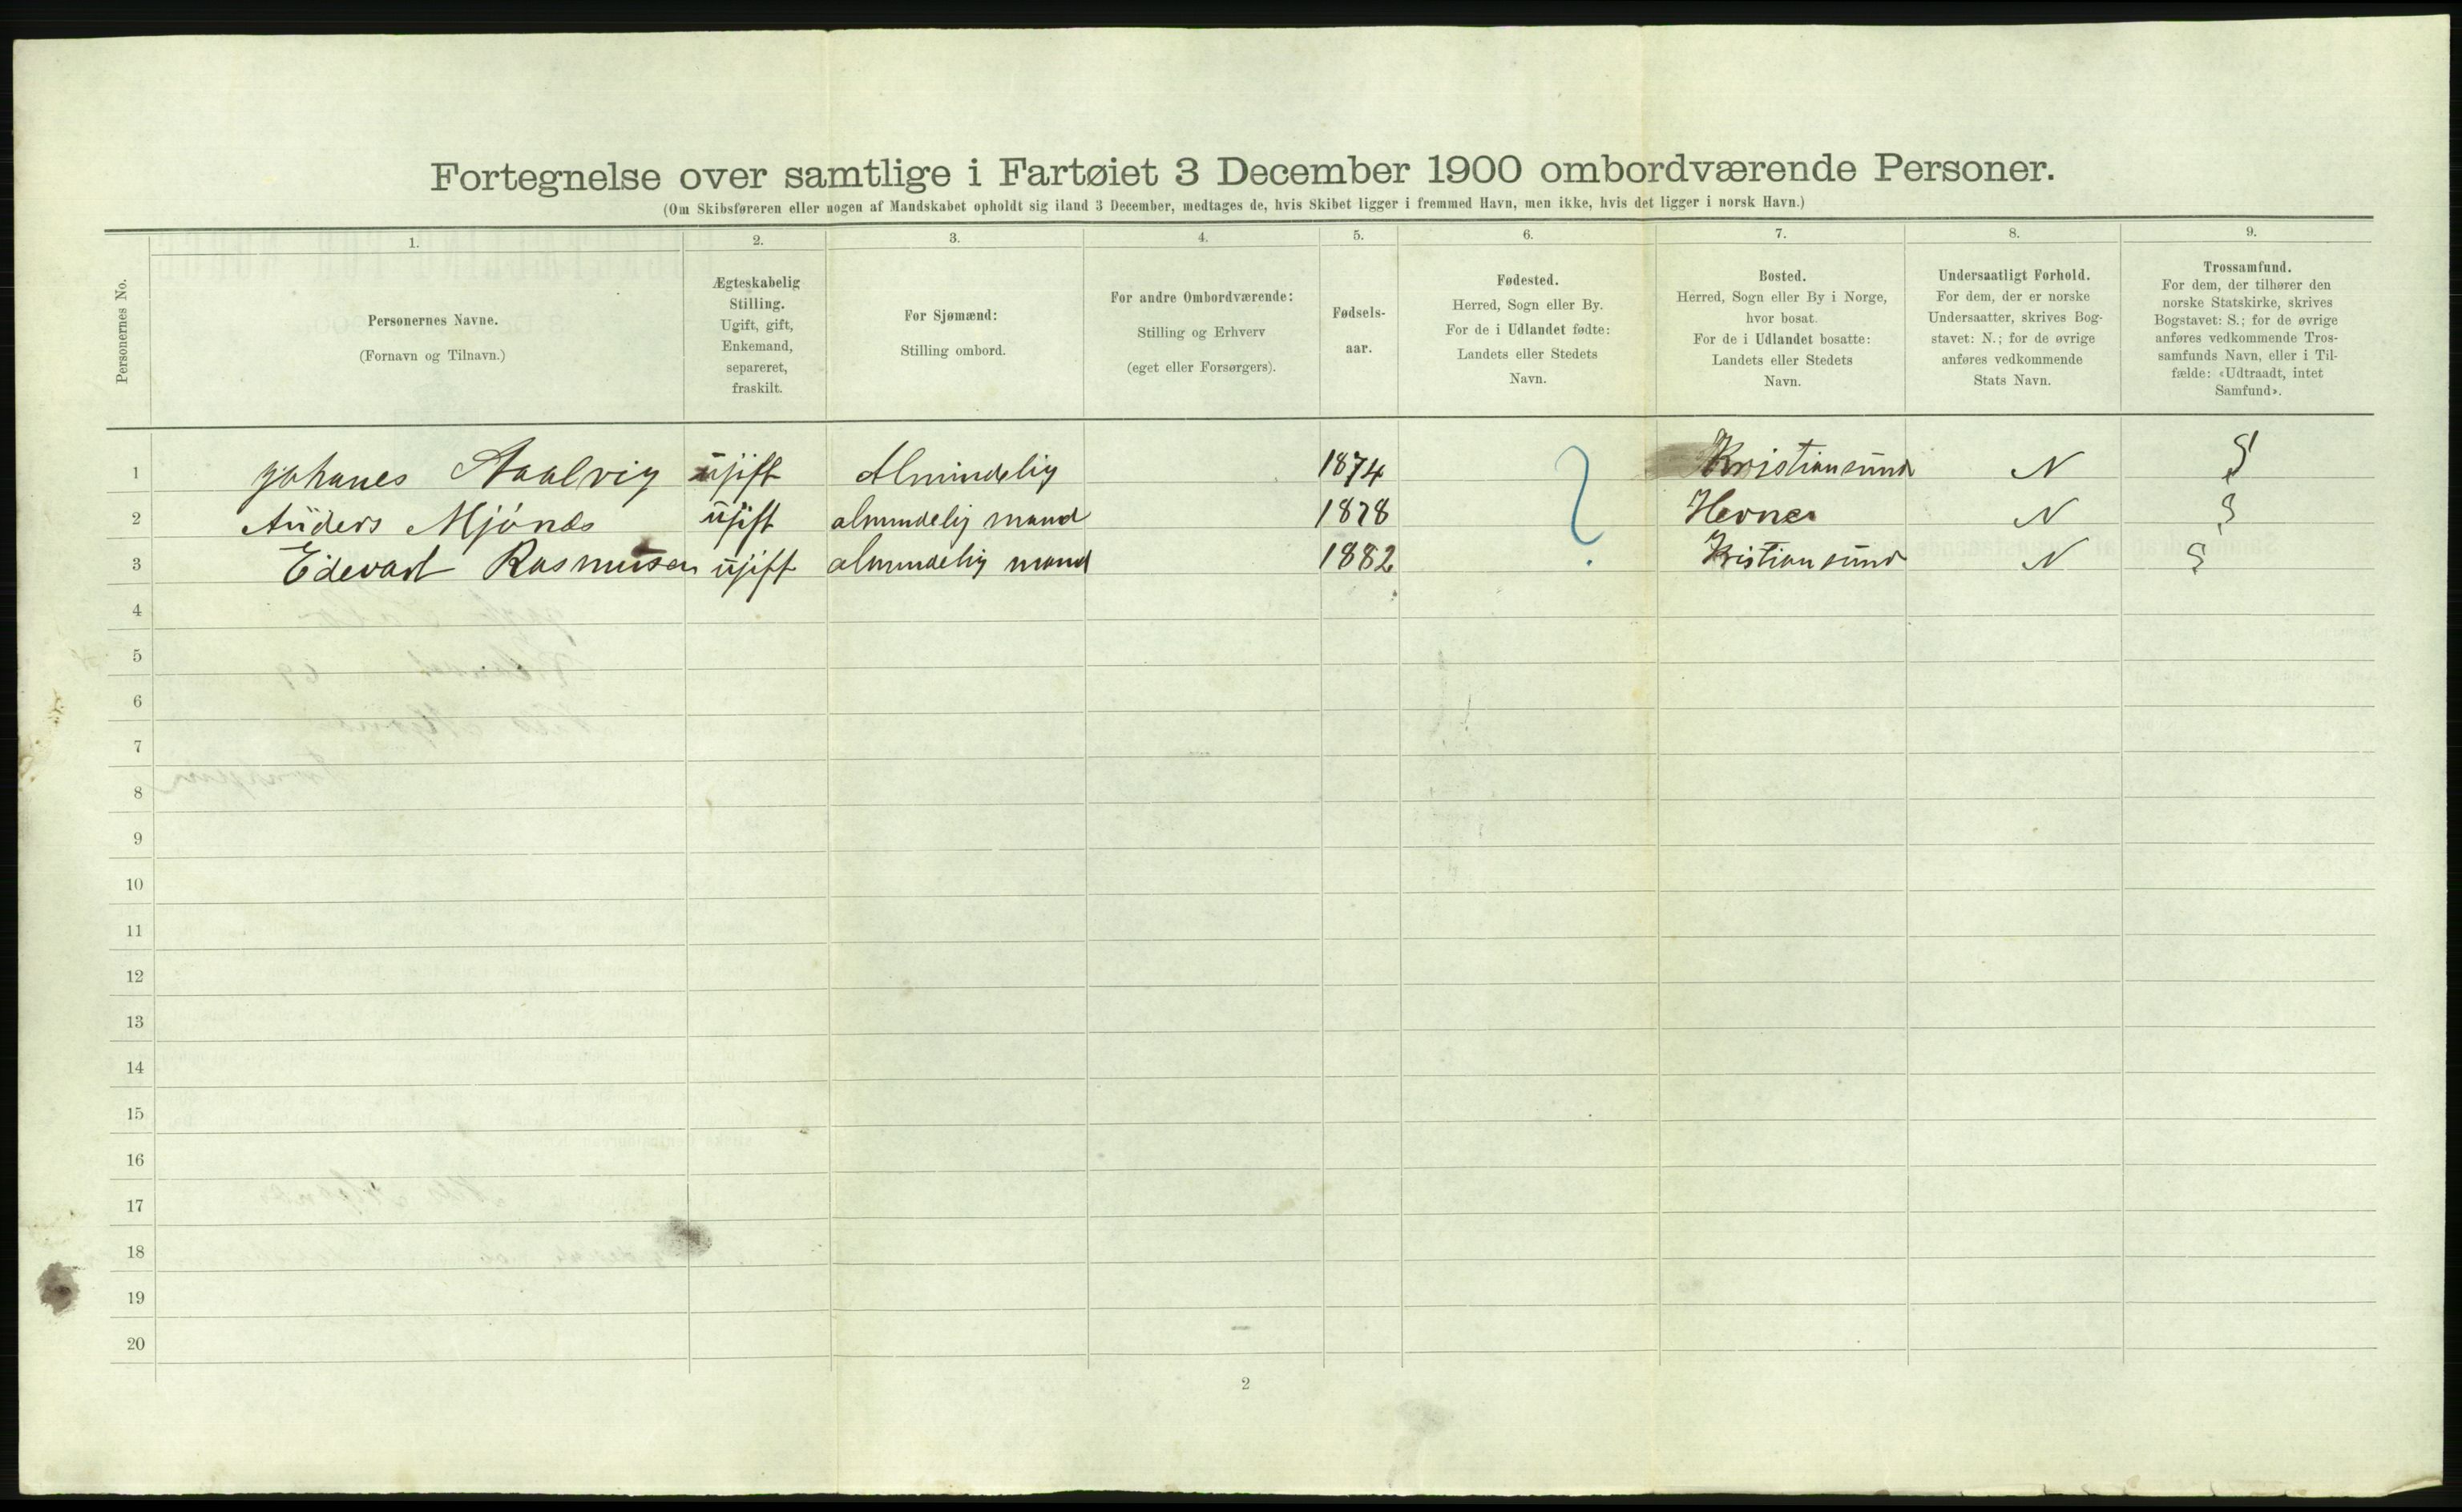 Fortegnelse over samtlige i Fartøiet 3 December 1900 ombordværende Personer.
(Om Skibsføreren eller nogen af Mandskabet opholdt sig iland 3 December, medtages de, hvis Skibet ligger i fremmed Havn, men ikke, hvis det ligger i norsk Havn.)
Personernes No.
1.
Personernes Navne.
(Fornavn og Tilnavn.)
2.
Ægteskabelig
Stilling.
Ugift, gift,
Enkemand,
separeret,
fraskilt.
3.
For Sjømænd:
Stilling ombord.
4.
For andre Ombordværende:
Stilling og Erhverv
(eget eller Forsørgers).
5.
Fødsels-
aar.
6.
Fødested.
Herred, Sogn eller By.
For de i Udlandet fødte:
Landets eller Stedets
Navn.
7.
Bosted.
Herred, Sogn eller By i Norge,
hvor bosat.
For de i Udlandet bosatte:
Landets eller Stedets
Navn.
8.
Undersaatligt Forhold.
For dem, der er norske
Undersaatter, skrives Bog-
stavet: N.; for de øvrige
anføres vedkommende
Stats Navn.
9.
Trossamfund.
For dem, der tilhører den
norske Statskirke, skrives
Bogstavet: S.; for de øvrige
anføres vedkommende Tros-
samfunds Navn, eller i Til-
fælde: «Udtraadt, intet
Samfund».
1 Johanes Aalvig ujift Almindelig 1874 ? Kristiansund N S
2 Anders Mjönes ujift almindelig mand 1878 Hevne N S
3 Edevart Rasmusen ujift almindelig mand 1882 Kristiansund N S
4
5
6
7
8
9
10
11
12
13
14
15
16
17
18
19
20
2